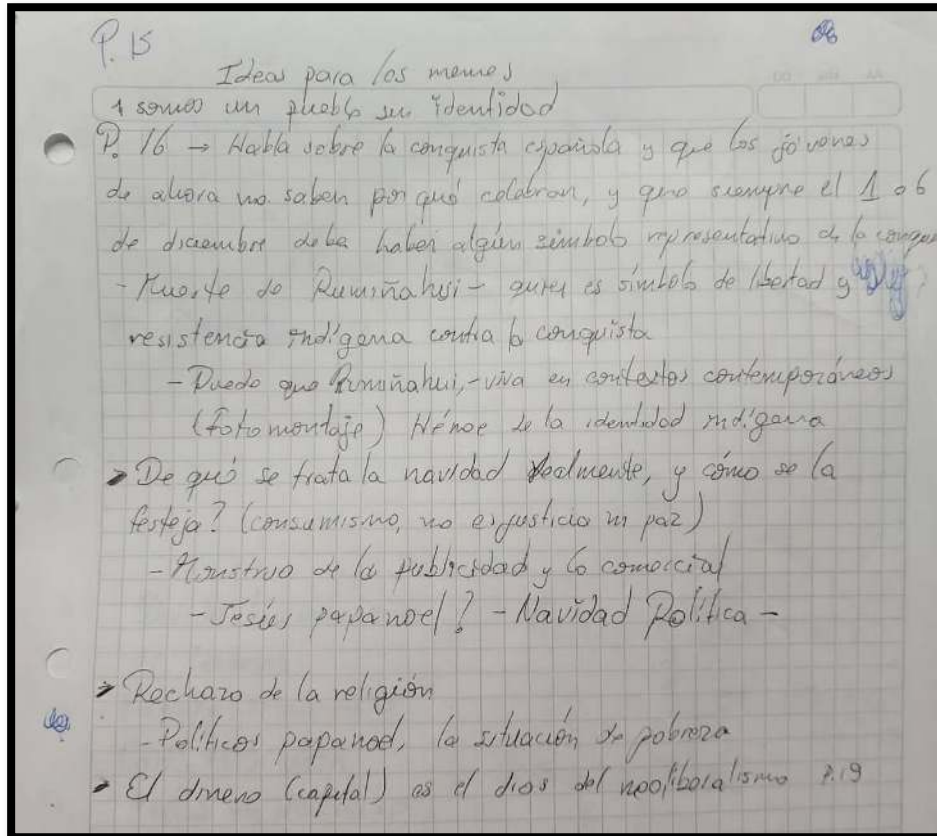 P. 15
Ideas para los memes
1 somos un pueblo sin identidad
P. 16 → Habla sobre la conquista española y que los jóvenes
de ahora no saben por qué celebran, y que siempre el 1 o 6
de diciembre debe haber algún símbolo representativo de la conquis
- Muerte de Rumiñahui - quien es símbolo de libertad y
resistencia indígena contra la conquista
- Puede que Rumiñahui, - viva en contextos contemporáneos
(fotomontaje) Héroe de la identidad indígena
➤ De qué se trata la navidad realmente, y cómo se la
festeja? (consumismo, no es justicia ni paz)
- Monstruo de la publicidad y lo comercial
- Jesús papanoel? - Navidad Política -
➤ Rechazo de la religión
- Políticos papanoel, la situación de pobreza
➤ El dinero (capital) es el dios del neoliberalismo P.19